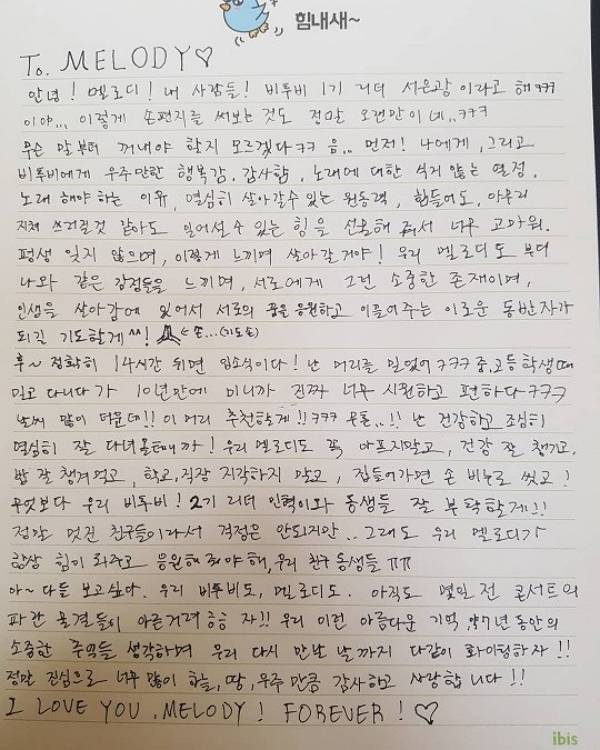 힘내새~
To. MELODY♡
안녕! 멜로디! 내 사람들! 비투비 1기 리더 서은광이라고 해ㅋㅋㅋ
이야... 이렇게 손편지를 써보는 것도 정말 오랜만이네..ㅋㅋㅋ
무슨 말부터 꺼내야 할지 모르겠다ㅋㅋ 음.. 먼저! 나에게, 그리고
비투비에게 우주만한 행복감, 감사함, 노래에 대한 식지 않는 열정,
노래 해야 하는 이유, 열심히 살아갈 수 있는 원동력, 힘들어도, 아무리
지쳐 쓰러질것 같아도 일어설 수 있는 힘을 선물해 줘서 너무 고마워.
평생 잊지 않으며, 이렇게 느끼며 살아갈거야! 우리 멜로디도 부디
나와 같은 감정들을 느끼며, 서로에게 그런 소중한 존재이며,
인생을 살아감에 있어서 서로의 꿈을 응원하고 이끌어주는 이로운 동반자가
되길 기도할게^^! ← 손...(기도손)
후~ 정확히 14시간 뒤면 입소식이다! 난 머리를 밀었어ㅋㅋㅋ 중,고등학생때
밀고 다니다가 10년만에 미니까 진짜 너무 시원하고 편하다ㅋㅋㅋ
날씨 많이 더운데!! 이 머리 추천할게!! ㅋㅋㅋ 무튼..!! 난 건강하고 조심히
열심히 잘 다녀올테니까! 우리 멜로디도 꼭 아프지말고, 건강 잘 챙기고,
밥 잘 챙겨먹고, 학교,직장 지각하지 말고, 집들어가면 손 비누로 씻고!
무엇보다 우리 비투비! 2기 리더 민혁이와 동생들 잘 부탁할게!!
정말 멋진 친구들이라서 걱정은 안되지만.. 그래도 우리 멜로디가
항상 힘이 되주고 응원해줘야 해, 우리 친구 동생들 ㅠㅠ
아~ 다들 보고싶다. 우리 비투비도, 멜로디도. 아직도 몇일 전 콘서트의
파란 물결들이 아른거려 흠흠 자!! 우리 이런 아름다운 기억, 약 7년 동안의
소중한 추억들 생각하며 우리 다시 만날 날까지 다같이 화이팅하자!!
정말 진심으로 너무 많이 하늘, 땅, 우주 만큼 감사하고 사랑합니다!!
I LOVE YOU. MELODY! FOREVER! ♡
ibis